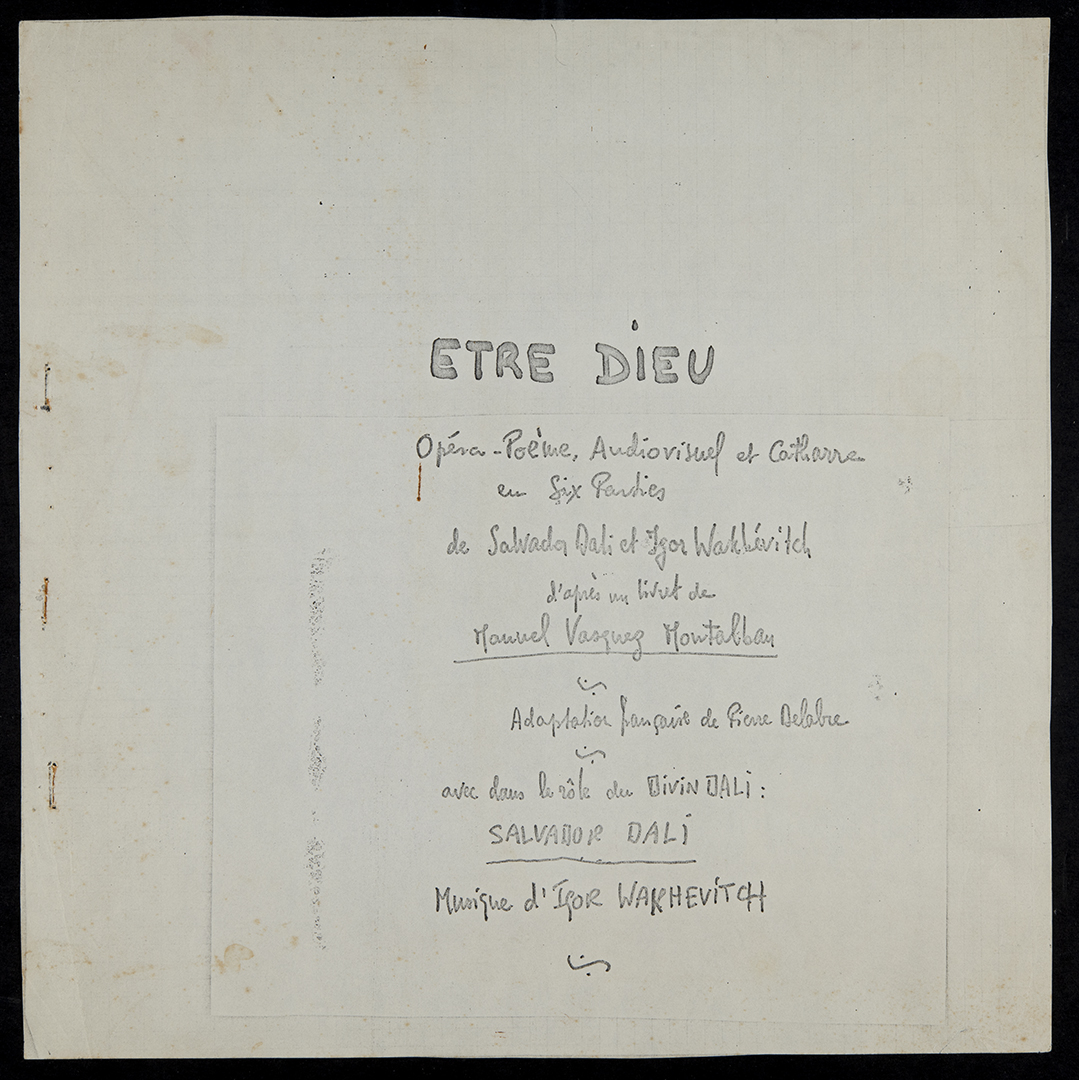 ETRE DIEU
Opéra-Poème, Audiovisuel et Catharre
en Six Parties
de Salvador Dali et Igor Wakhévitch
d'après un livret de
Manuel Vasquez Montalban
Adaptation française de Pierre Delabre
avec dans le rôle du DIVIN DALI :
SALVADOR DALI
Musique d'IGOR WAKHEVITCH